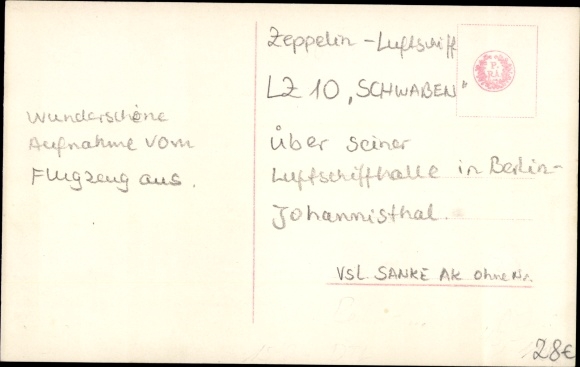 Wunderschöne
Aufnahme vom
Flugzeug aus.
Zeppelin-Luftschiff
LZ 10 „SCHWABEN"
über seiner
Luftschiffhalle in Berlin-
Johannisthal.
Vgl. SANKE AK ohne Nr.
28€